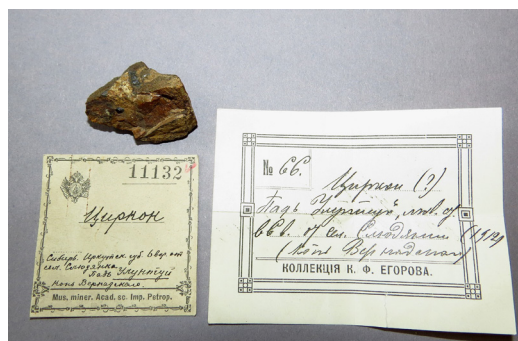 11132
Циркон
Сибирь. Иркутск. губ. 6 вер. от
сел. Слюдянка.
Падь Улунтуй
копи Вернадского.
Mus. miner. Acad. sc. Imp. Petrop.
№ 66.
Циркон (?)
Падь
6 в. от сел. Слюдянки (1912)
(Копи Вернадского)
КОЛЛЕКЦІЯ К. Ѳ. ЕГОРОВА.